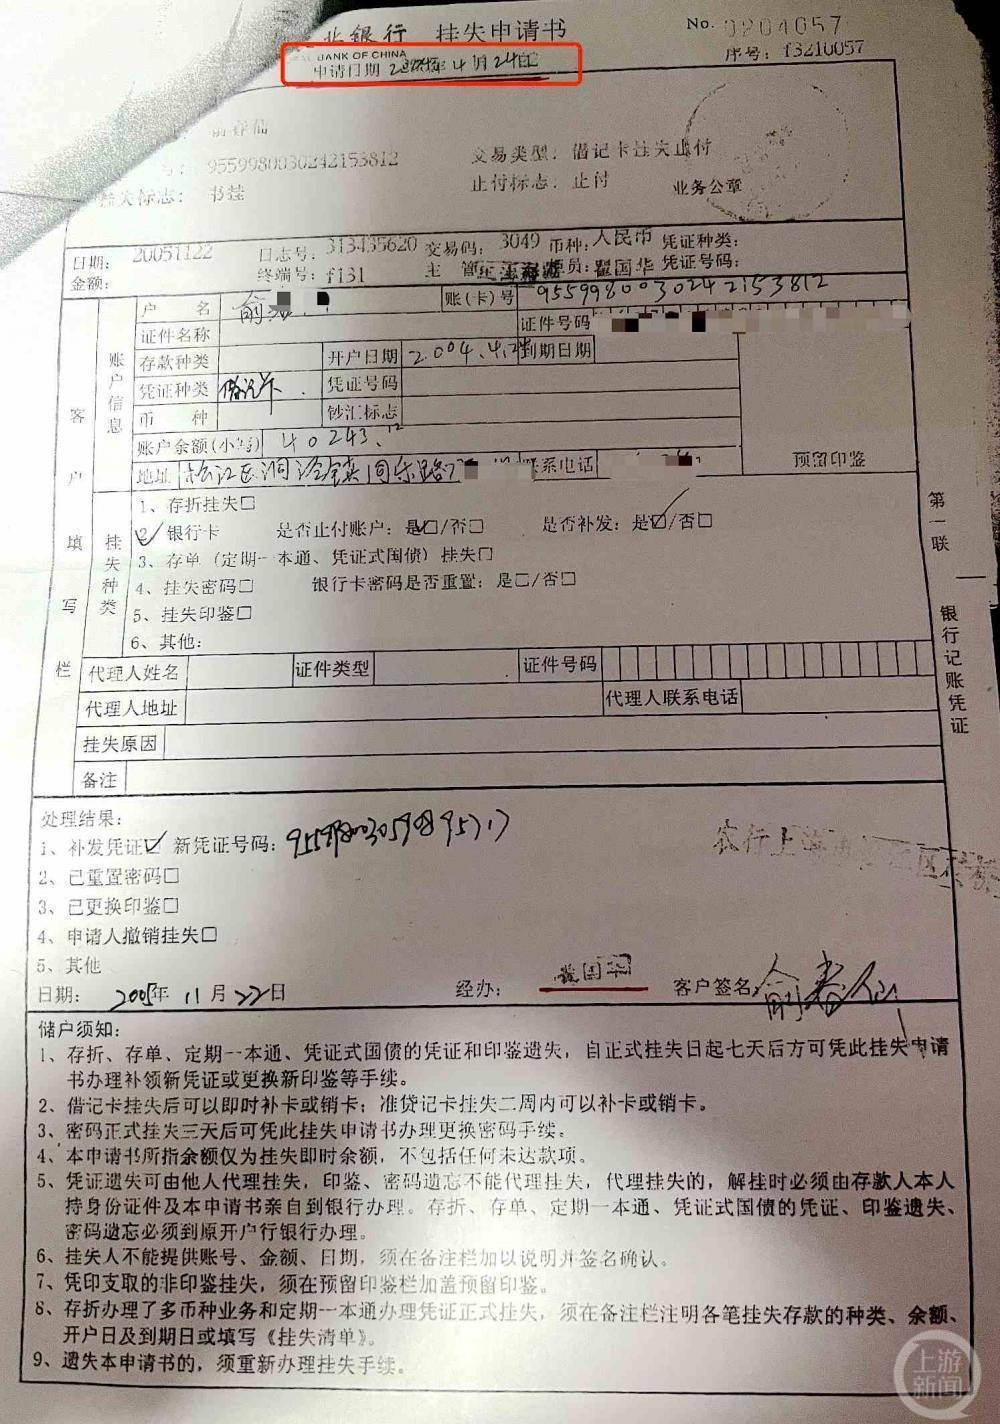 业银行 挂失申请书 No. 0204057
BANK OF CHINA 序号: f3210057
申请日期 年 4 月 24日
9559980030242153812 交易类型: 借记卡挂失止付
挂失标志: 书挂 止付标志: 止付 业务公章
日期: 20051122 日志号: 313435620 交易码: 3049 币种: 人民币 凭证种类:
金额: 终端号: f131 主管 员: 瞿国华 凭证号码:
户 名 俞 账(卡)号 9559980030242153812
证件名称 证件号码
存款种类 开户日期 2004.4.24 到期日期
凭证种类 借记卡 凭证号码
币 种 钞汇标志
账户余额(小写) 40243.12
地址 松江区洞泾镇同乐路 联系电话 预留印鉴
客户填写栏
账户信息
挂失种类
1、存折挂失□
2 ☑ 银行卡 是否止付账户: 是☑/否□ 是否补发: 是☑/否□
3、存单 (定期一本通、凭证式国债) 挂失□
4、挂失密码□ 银行卡密码是否重置: 是□/否□
5、挂失印鉴□
6、其他:
代理人姓名 证件类型 证件号码
代理人地址 代理人联系电话
挂失原因
备注
第一联 银行记账凭证
处理结果:
1、补发凭证☑ 新凭证号码:
2、已重置密码□
3、已更换印鉴□
4、申请人撤销挂失□
5、其他
农行上海
日期: 2005年 11月 22日 经办: 瞿国华 客户签名: 俞春仙
储户须知:
1、存折、存单、定期一本通、凭证式国债的凭证和印鉴遗失，自正式挂失日起七天后方可凭此挂失申请
书办理补领新凭证或更换新印鉴等手续。
2、借记卡挂失后可以即时补卡或销卡；准贷记卡挂失二周内可以补卡或销卡。
3、密码正式挂失三天后可凭此挂失申请书办理更换密码手续。
4、本申请书所指余额仅为挂失即时余额，不包括任何未达款项。
5、凭证遗失可由他人代理挂失，印鉴、密码遗忘不能代理挂失，代理挂失的，解挂时必须由存款人本人
持身份证件及本申请书亲自到银行办理。存折、存单、定期一本通、凭证式国债的凭证、印鉴遗失、
密码遗忘必须到原开户行银行办理。
6、挂失人不能提供账号、金额、日期，须在备注栏加以说明并签名确认。
7、凭印支取的非印鉴挂失，须在预留印鉴栏加盖预留印鉴。
8、存折办理了多币种业务和定期一本通办理凭证正式挂失，须在备注栏注明各笔挂失存款的种类、余额、
开户日及到期日或填写《挂失清单》。
9、遗失本申请书的，须重新办理挂失手续.
上游新闻